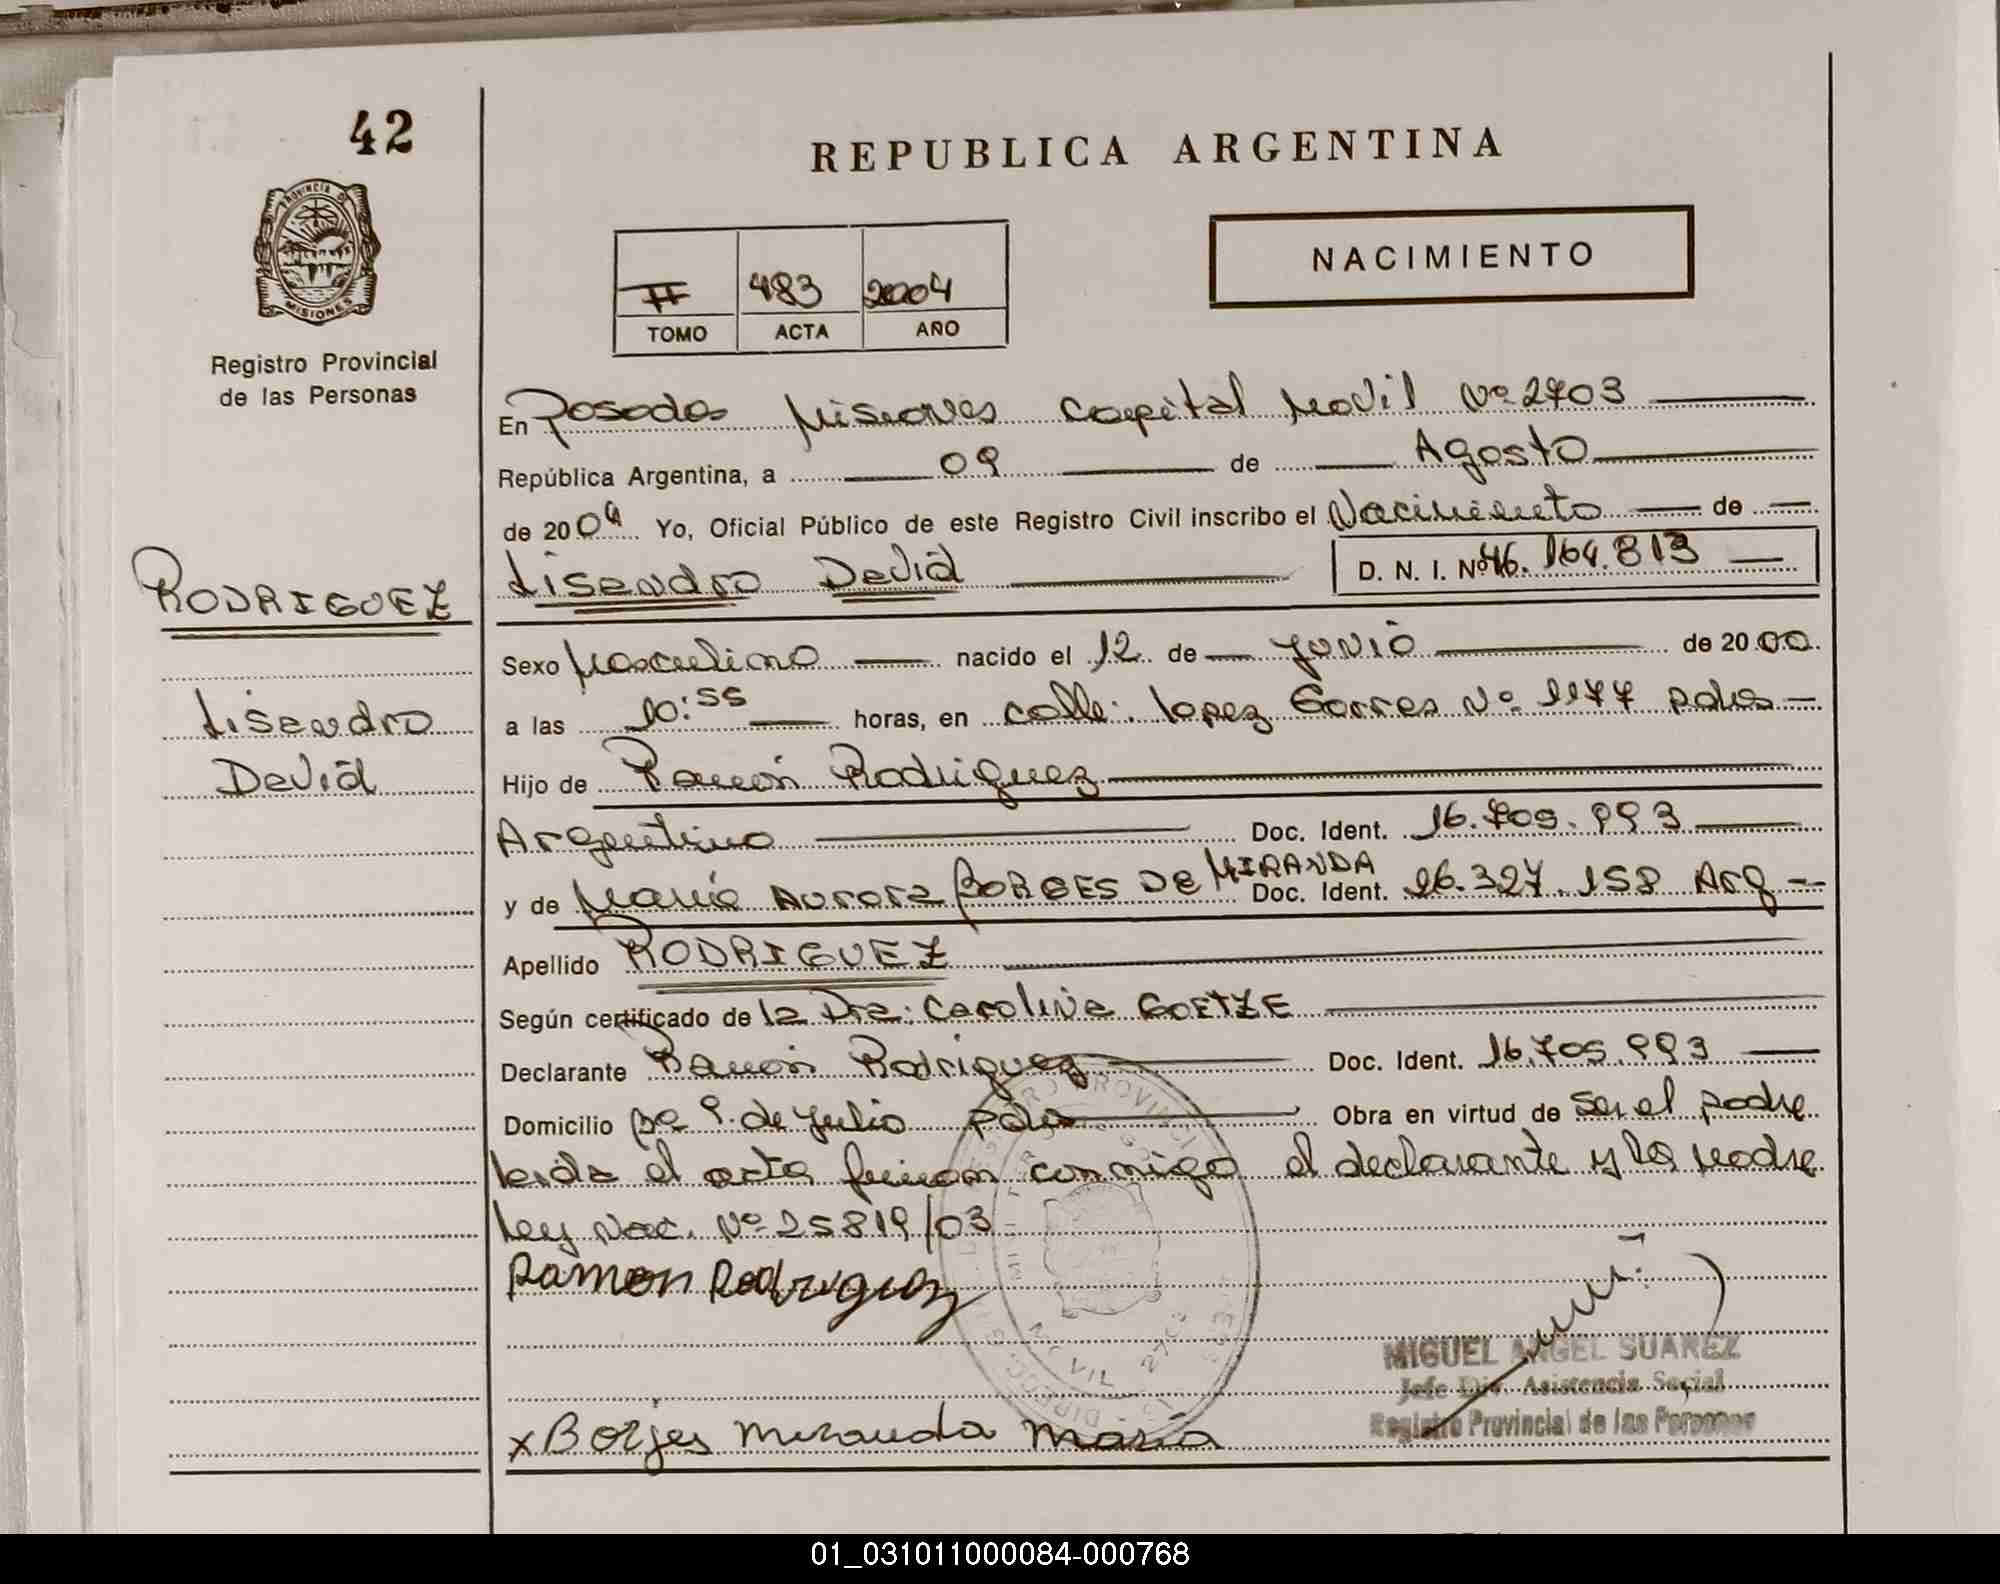 42
REPUBLICA ARGENTINA
NACIMIENTO
PROVINCIA DE
MISIONES
Registro Provincial
de las Personas
II 483 2004
TOMO ACTA AÑO
En Posadas Misiones Capital Movil Nº 2703
República Argentina, a 09 de Agosto
de 2004 Yo, Oficial Público de este Registro Civil inscribo el Nacimiento de
Lisandro David D. N. I. Nº 46.164.813
RODRIGUEZ
Lisandro
David
Sexo Masculino nacido el 12 de Junio de 2000
a las 10:55 horas, en calle: Lopez Torres Nº 1177 Pdas
Hijo de Ramón Rodriguez
Argentino Doc. Ident. 16.705.993
y de Maria Aurora BORGES DE MIRANDA Doc. Ident. 26.327.158 Arg
Apellido RODRIGUEZ
Según certificado de la Dra: Carolina GOETZE
Declarante Ramón Rodriguez Doc. Ident. 16.705.993
Domicilio Bº 9 de Julio Pdas Obra en virtud de Ser el padre
Leida el acta firman conmigo el declarante y la madre
Ley Nac. Nº 25819/03
Ramon Rodriguez
MIGUEL ANGEL SUAREZ
Jefe Div. Asistencia Social
Registro Provincial de las Personas
x Borjes Miranda Maria
01_031011000084-000768